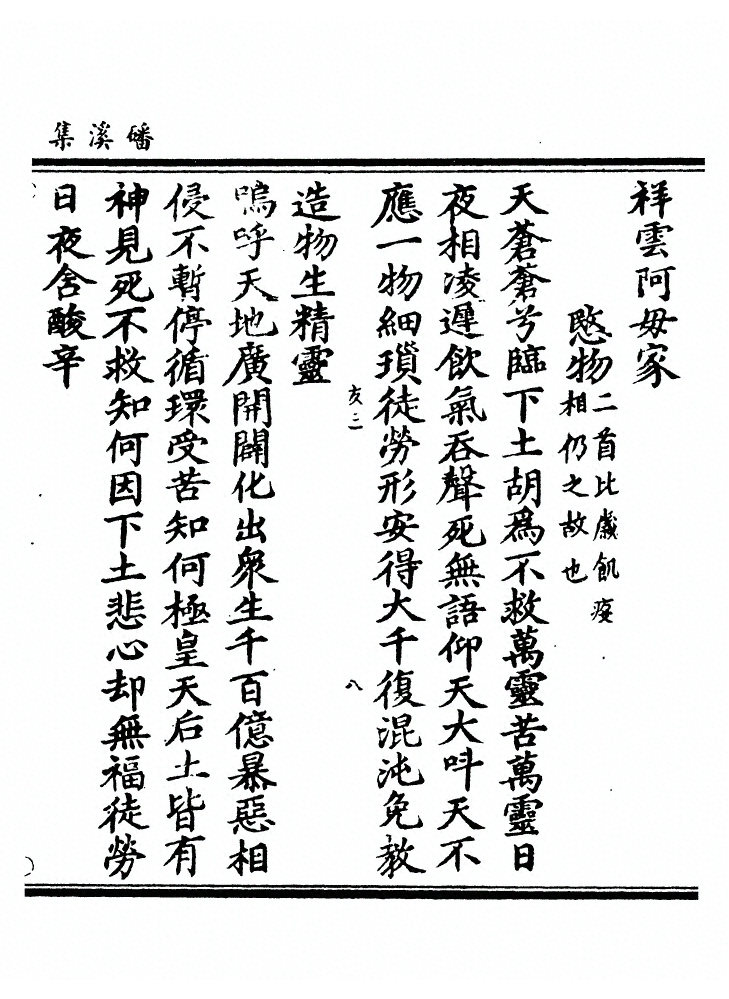 磻溪集
祥雲阿母家
愍物二首比歲飢疫
相仍之故也
天蒼蒼兮臨下土胡爲不救萬靈苦萬靈日
夜相凌遲飲氣吞聲死無語仰天大叫天不
應一物細瑣徒勞形安得大千復混沌免教
亥三
八
造物生精靈
嗚呼天地廣開闢化出衆生千百億暴惡相
侵不暫停循環受苦知何極皇天后土皆有
神見死不救知何因下土悲心却無福徒勞
日夜含酸辛